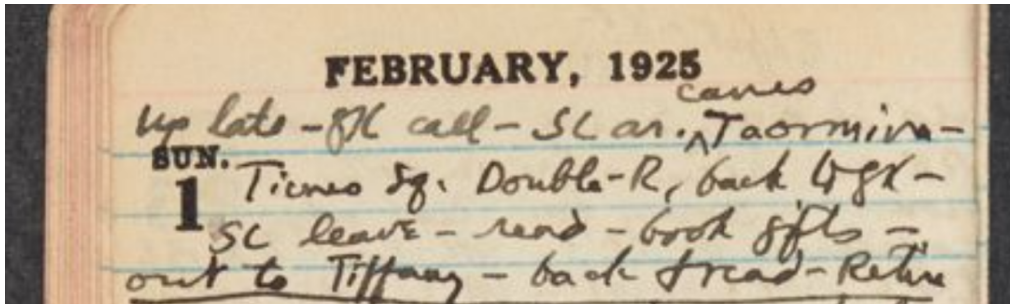 FEBRUARY, 1925
canes
Up late – GK call – SL ar. ^ Taormina –
SUN.
1 Times Sq. Double-R, back w GK –
SL leave – read – book gifts –
out to Tiffany – back & read – Retire